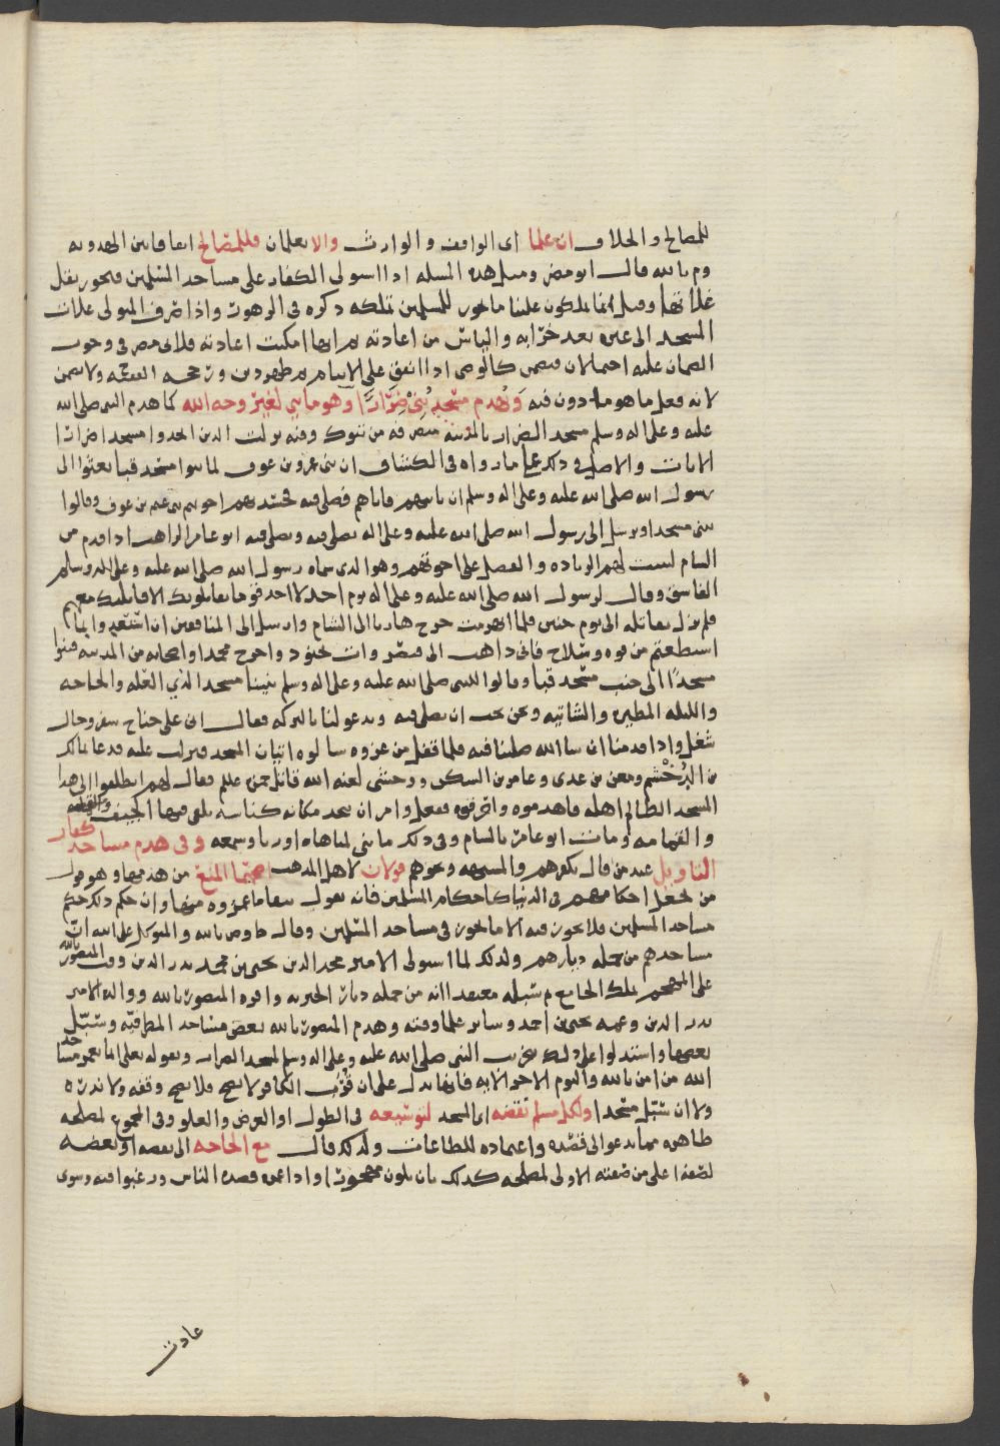 للمصالح والخلاف ان علما اى الواقف والوارث والا يعلمان فللمصالح اتفاقا بين الهدويه
وم بالله قال ابو مضر ومثل هذه المسله اذا استولى الكفار على مساجد المسلمين فيجوز نقل
غلاتها وقيل انما يملكون علينا ما يجوز للمسلمين تملكه ذكره فى الزهور واذا صرف المتولى غلات
المسجد الى غيره بعد خرابه والياس من اعادته ثم انها امكنت اعادته فلابى مضر فى وجوب
الضمان عليه احتمالان فيضمن كالوصى اذا انفق على الايتام ثم ظهر دين ورجحه الفقيه ولا يضمن
لانه فعل ما هو ماذون فيه ويهدم مسجد بُنِىْ ضِرَارًا وهو ما بنى لغير وجه الله كما هدم النبى صلى الله
عليه وعلى اله وسلم مسجد الضرار بالمدينة منصرفه من تبوك وفيه نزلت الذين اتخذوا مسجدا ضرارا
الايات والاصل فى ذلك على ما رواه فى الكشاف ان بنى عمرو بن عوف لما بنوا مسجد قبا بعثوا الى
رسول الله صلى الله عليه وعلى اله وسلم ان ياتيهم فاتاهم فصلى فيه فحسدتهم اخوتهم بنو غنم بن عوف وقالوا
نبنى مسجدا ونرسل الى رسول الله صلى الله عليه وعلى اله يصلى فيه ويصلى فيه ابو عامر الراهب اذا قدم من
الشام ليثبت لهم الزياده والفضل على اخوتهم وهو الذى سماه رسول الله صلى الله عليه وعلى اله وسلم
الفاسق وقال لرسول الله صلى الله عليه وعلى اله يوم احد لا اجد قوما يقاتلونك الا قاتلتك معهم
فلم يزل يقاتله الى يوم حنين فلما انهزمت خرج هاربا الى الشام وارسل الى المنافقين ان استعدوا بما
استطعتم من قوه وسلاح فانى ذاهب الى قيصر وات بجنود واخرج محمدا واصحابه من المدينه فبنوا
مسجدًا الى جنب مسجد قبا وقالوا للنبى صلى الله عليه وعلى اله وسلم بنينا مسجدا لذي العله والحاجه
والليله المطيره والشاتيه ونحن نحب ان يصلى فيه ويدعو لنا بالبركه فقال انى على جناح سفر وحال
شغل واذا قدمنا ان شا الله صلينا فيه فلما قفل من غزوه سالوه اتيان المسجد فنزلت عليه فدعا بمالك
بن الدُّخْشم ومعن بن عدى وعامر بن السكن ووحشى لعنه الله قاتل حمزه عليلم فقال لهم انطلقوا الى هذا
المسجد الظالم اهله فاهدموه واحرقوه ففعل وامر ان يتخذ مكانه كناسه يلقى فيها الجيف
والقمامه ومات ابو عامر بالشام وفى ذلك ما بنى لمباهاه اوريا وسمعه وفى هدم مساجد كفار
التاويل عند من قال بكفرهم والمشبهه ونحوهم قولان لاهل المذهب اصحهما المنع من هدمها وهو قول
من يجعل احكامهم فى الدنيا كاحكام المسلمين فانه يقول ببقا ما عمروه منها وان حكم ذلك حكم
مساجد المسلمين فلا يجوز فيه الا ما يجوز فى مساجد المسلمين وقال ط وص بالله والمتوكل على الله ان
مساجدهم من جمله ديارهم ولذلك لما استولى الامير مجد الدين يحيى بن محمد بدر الدين وقت المنصور بالله
على المهجم ملك الجامع ثم سبله معتقدا انه من جمله ديار الجبريه واقره المنصور بالله ووالده الامير
بدر الدين وعمه يحيى بن احمد وساير علما وقته وهدم المنصور بالله بعض مساجد المطرفيه وسبّل
بعضها واستدلوا على ذلك بتخريب النبى صلى الله عليه وعلى اله وسلم لمسجد الضرار وبقوله تعلى انما يعمر مساجد
الله من امن بالله واليوم الاخر الايه فانها تدل على ان قُرَب الكافر لا تصح فلا يصح وقفه ولا نذره
ولا ان سَبّل مسجدا ولكل مسلم نقضه اى المسجد لتوسيعه فى الطول او العرض والعلو وفى المجموع لمصلحه
ظاهره مما يدعو الى قصده واعتماده للطاعات ولذلك قال مع الحاجه الى نقضه او بعضه
لصفه اعلى من صفته الاولى لمصلحه كذلك بان يكون مهجورا واذا عمر قصده الناس ورغبوا فيه وسوى
عادت